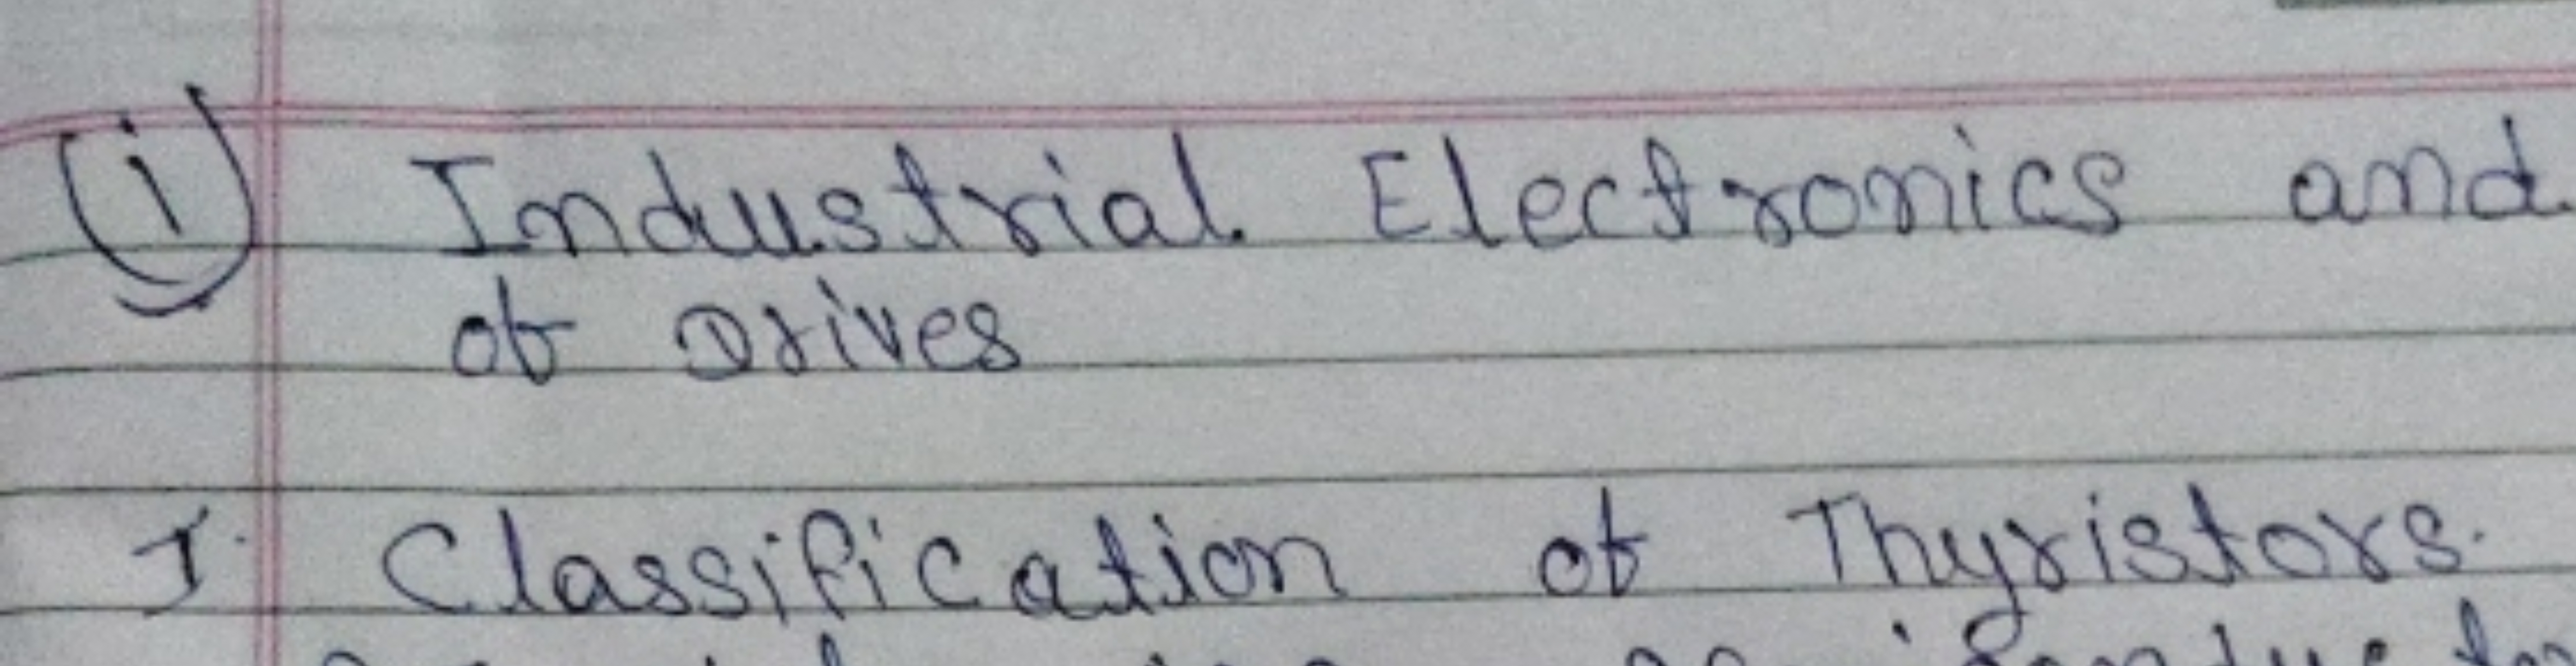 (i) Industrial Electronics and
of Drives
I. Classification of Thyristors.